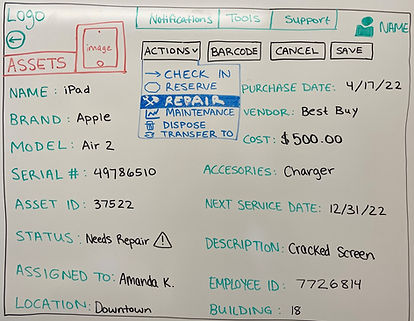 Logo
Notifications Tools Support
NAME
ASSETS
image
ACTIONS
BARCODE
CANCEL
SAVE
CHECK IN
RESERVE
REPAIR
MAINTENANCE
DISPOSE
TRANSFER TO
NAME: iPad
BRAND: Apple
MODEL: Air 2
SERIAL #: 49786510
ASSET ID: 37522
STATUS: Needs Repair
ASSIGNED TO: Amanda K.
LOCATION: Downtown
PURCHASE DATE: 4/17/22
VENDOR: Best Buy
COST: $500.00
ACCESORIES: Charger
NEXT SERVICE DATE: 12/31/22
DESCRIPTION: Cracked Screen
EMPLOYEE ID: 7726814
BUILDING: 18